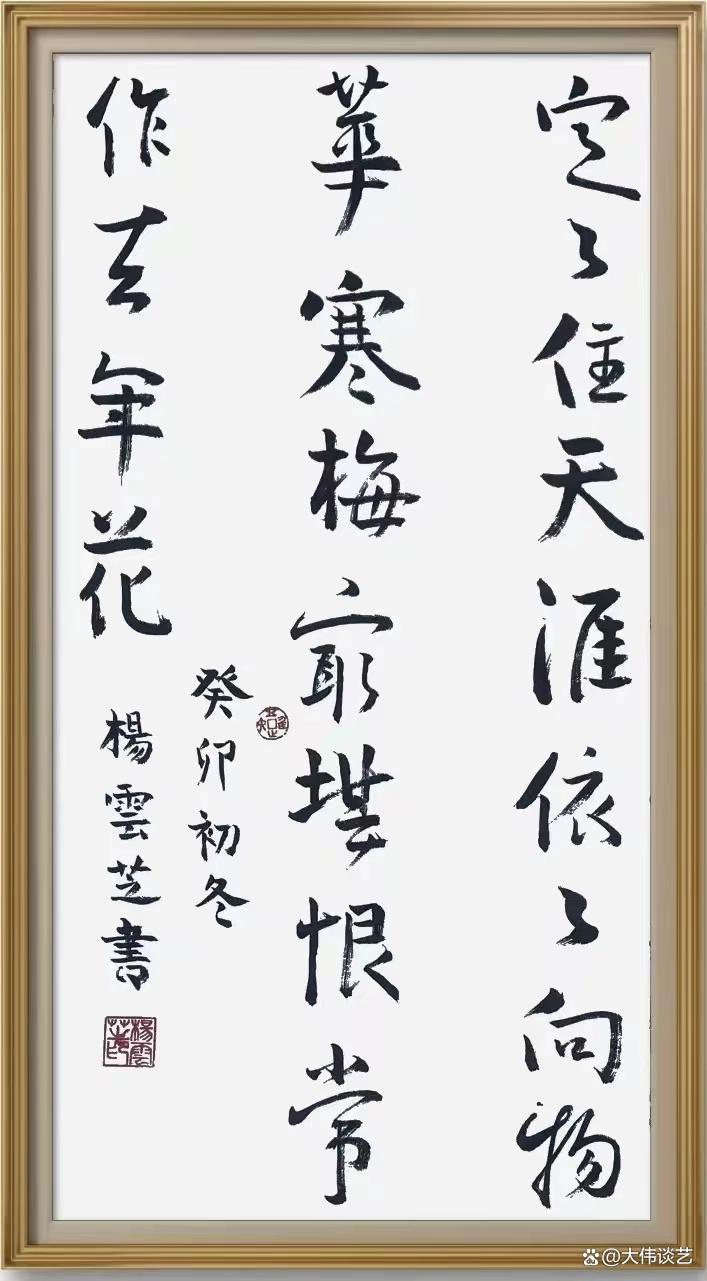 定々住天涯依々向物
華寒梅最堪恨常
作去年花
癸卯初冬
楊雲芝書
楊雲芝印
@大伟谈艺